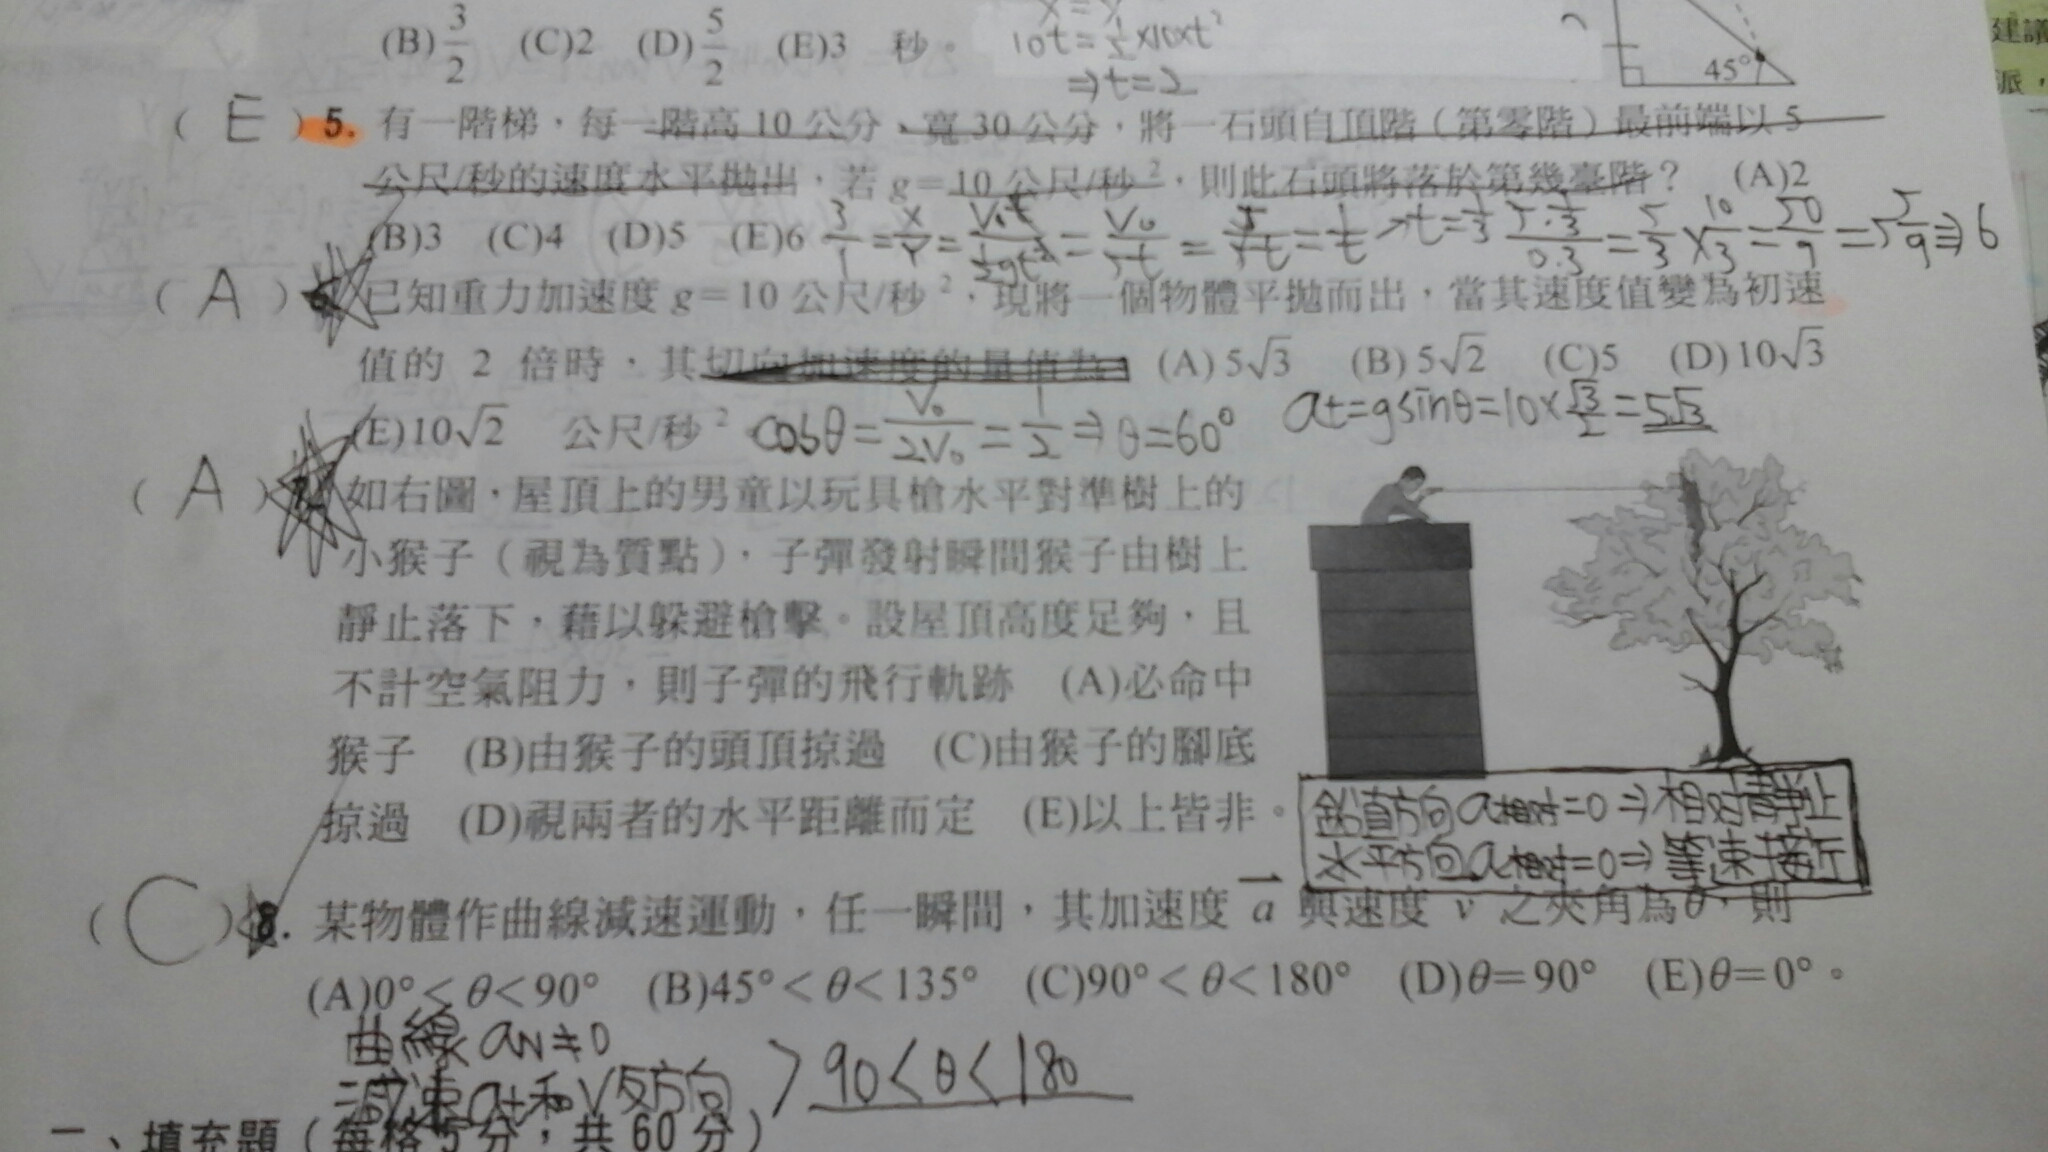 (B)3/2 (C)2 (D)5/2 (E)3 秒。
x=y
10t=½×10×t²
⇒t=2
45°
建議
派，
(E) 5. 有一階梯，每一階高 10 公分、寬 30 公分，將一石頭自頂階（第零階）最前端以 5
公尺/秒的速度水平拋出，若 g=10 公尺/秒²，則此石頭將落於第幾臺階？ (A)2
(B)3 (C)4 (D)5 (E)6
3/1=x/y=V₀t/½gt²=V₀/5t=5/5t=1/t →t=1/3 5·1/3/0.3=5/3×10/3=50/9=5 5/9⇒6
(A) 已知重力加速度 g=10 公尺/秒²，現將一個物體平拋而出，當其速度值變為初速
值的 2 倍時，其切向加速度的量值為 (A) 5√3 (B) 5√2 (C)5 (D) 10√3
(E)10√2 公尺/秒²
cosθ=V₀/2V₀=1/2⇒θ=60° at=gsinθ=10×√3/2=5√3
(A) 如右圖，屋頂上的男童以玩具槍水平對準樹上的
小猴子（視為質點），子彈發射瞬間猴子由樹上
靜止落下，藉以躲避槍擊。設屋頂高度足夠，且
不計空氣阻力，則子彈的飛行軌跡 (A)必命中
猴子 (B)由猴子的頭頂掠過 (C)由猴子的腳底
掠過 (D)視兩者的水平距離而定 (E)以上皆非。
鉛直方向a相對=0⇒相對靜止
水平方向a相對=0⇒等速接近
(C) 8. 某物體作曲線減速運動，任一瞬間，其加速度 a 與速度 v 之夾角為θ，則
(A)0°<θ<90° (B)45°<θ<135° (C)90°<θ<180° (D)θ=90° (E)θ=0°。
曲線 aN≠0
減速at和V反方向 > 90<θ<180
一、填充題（每格5分，共 60 分）